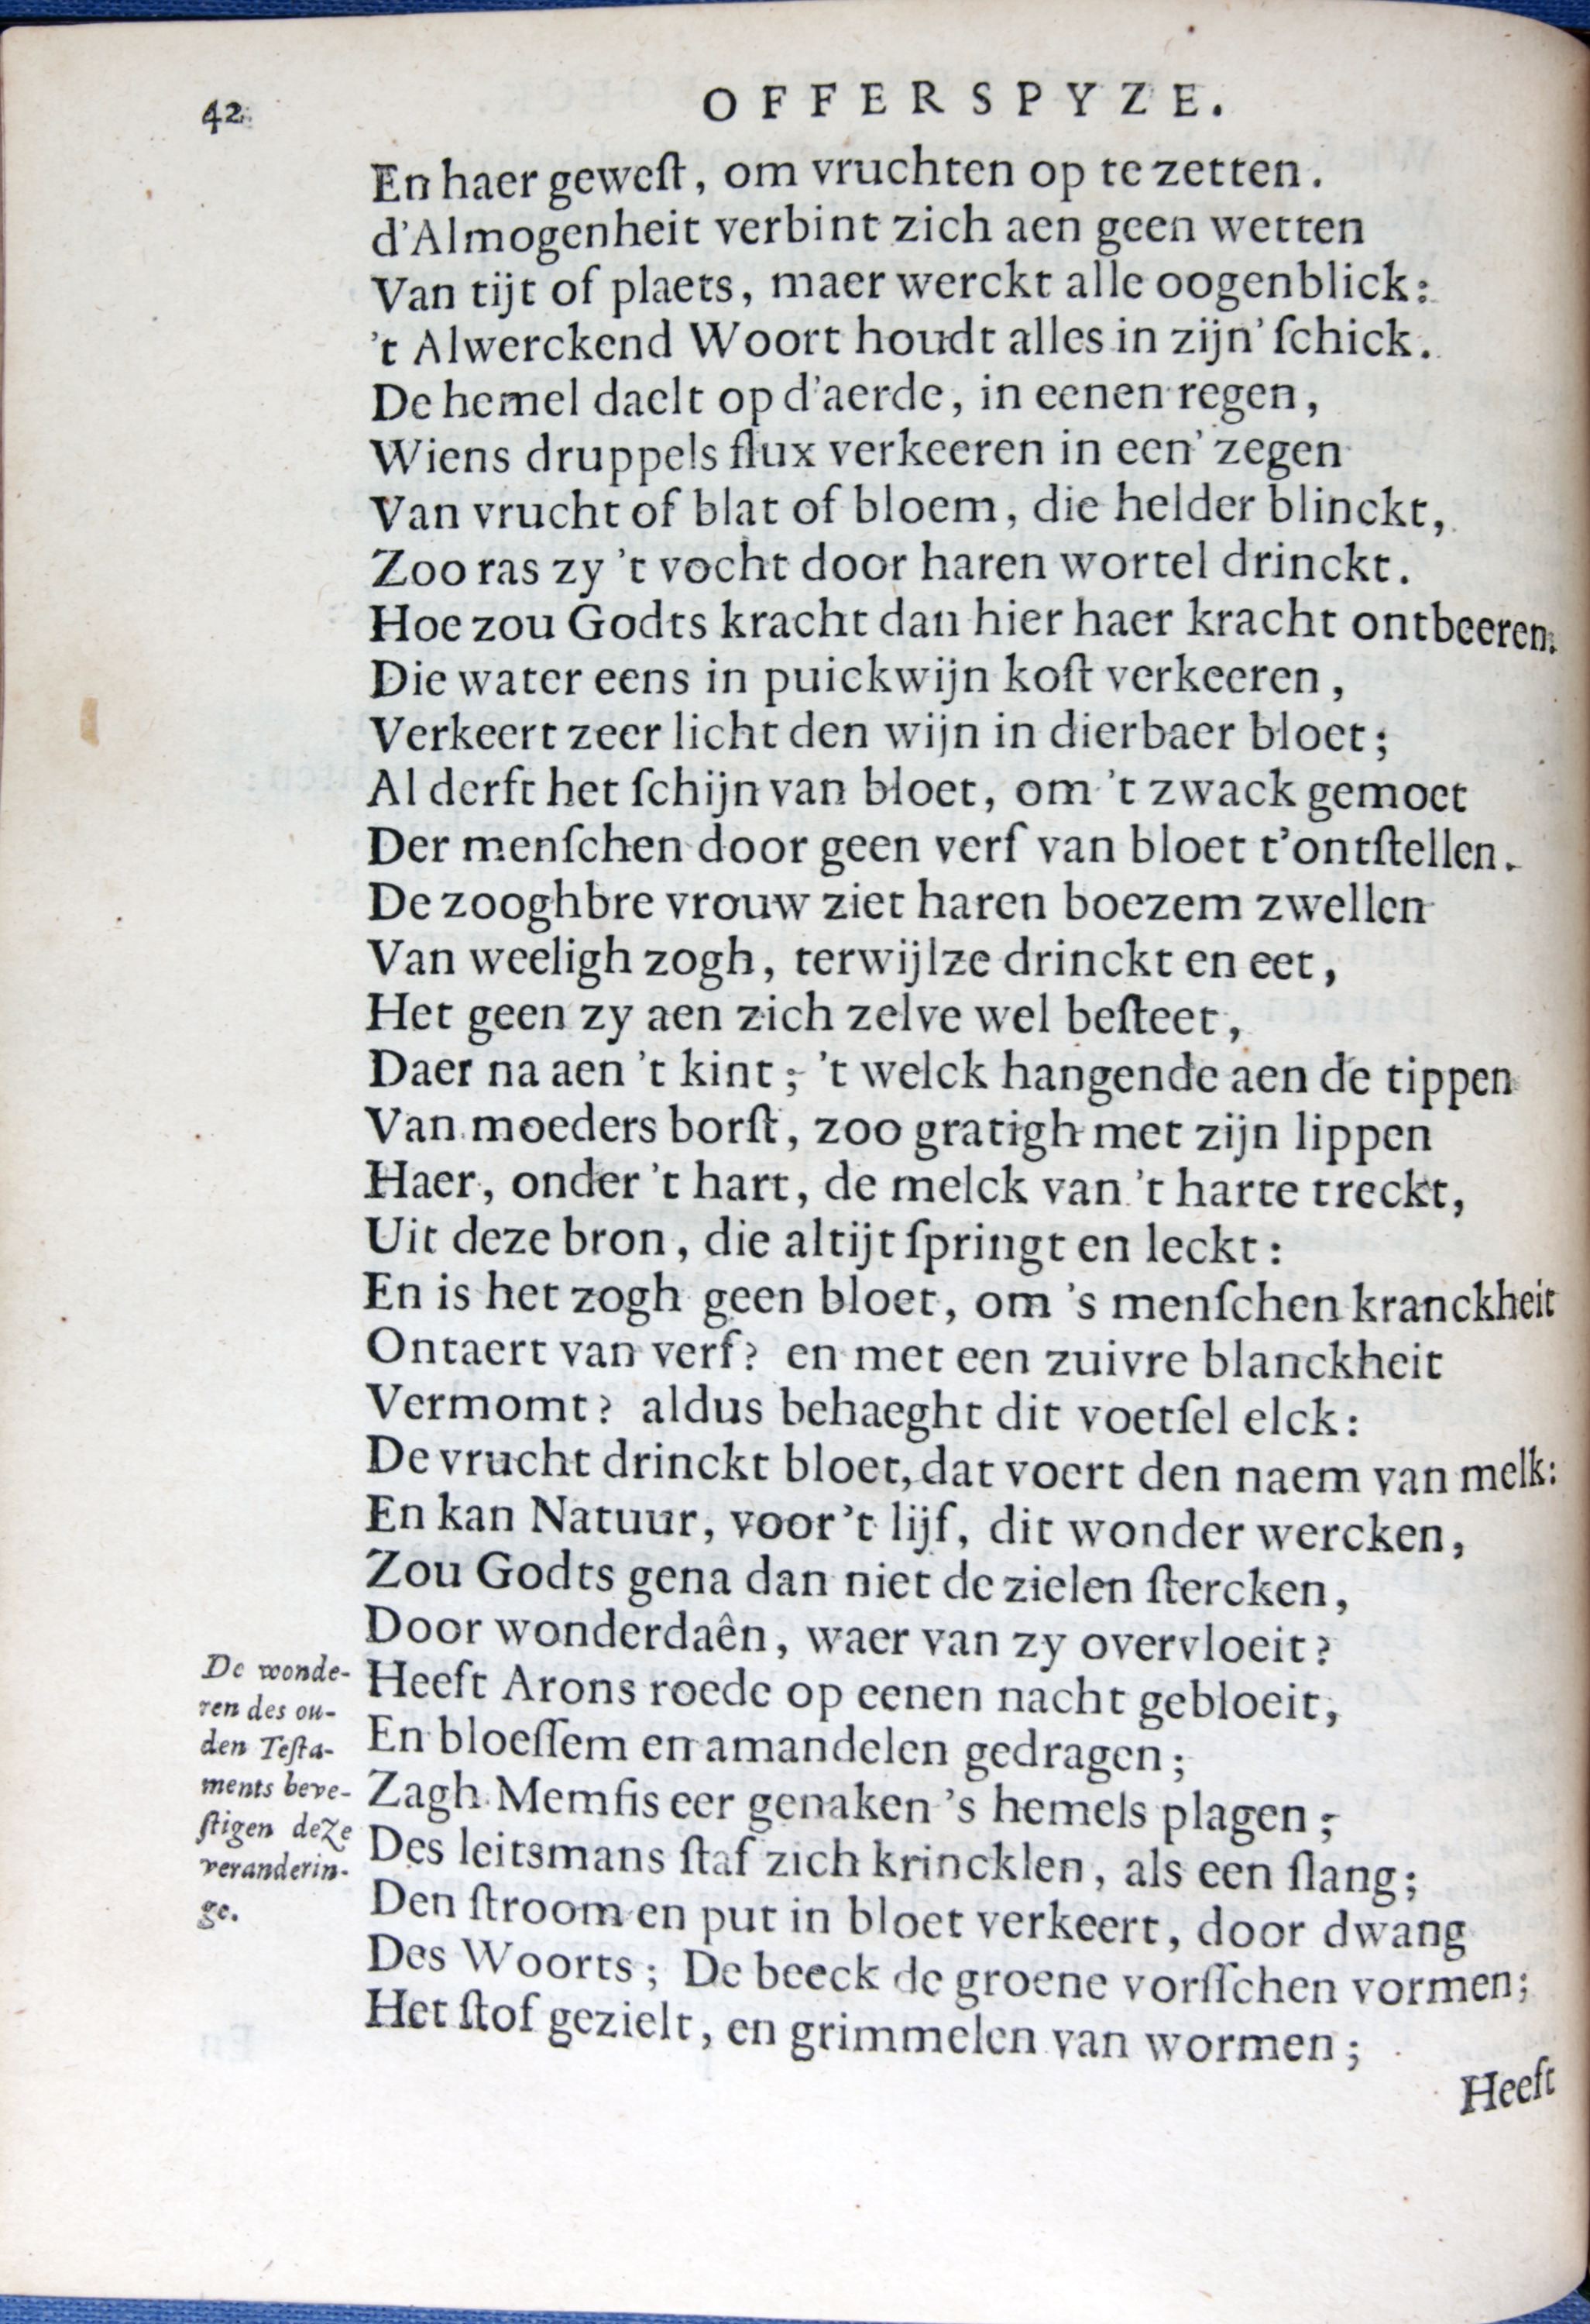 42
OFFERSPYZE.
En haer geweſt, om vruchten op te zetten.
d'Almogenheit verbint zich aen geen wetten
Van tijt of plaets, maer werckt alle oogenblick:
't Alwerckend Woort houdt alles in zijn' ſchick.
De hemel daelt op d'aerde, in eenen regen,
Wiens druppels flux verkeeren in een' zegen
Van vrucht of blat of bloem, die helder blinckt,
Zoo ras zy 't vocht door haren wortel drinckt.
Hoe zou Godts kracht dan hier haer kracht ontbeeren.
Die water eens in puickwijn koſt verkeeren,
Verkeert zeer licht den wijn in dierbaer bloet;
Al derft het ſchijn van bloet, om 't zwack gemoet
Der menſchen door geen verf van bloet t'ontſtellen.
De zooghbre vrouw ziet haren boezem zwellen
Van weeligh zogh, terwijlze drinckt en eet,
Het geen zy aen zich zelve wel beſteet,
Daer na aen 't kint; 't welck hangende aen de tippen
Van moeders borſt, zoo gratigh met zijn lippen
Haer, onder 't hart, de melck van 't harte treckt,
Uit deze bron, die altijt ſpringt en leckt:
En is het zogh geen bloet, om 's menſchen kranckheit
Ontaert van verf? en met een zuivre blanckheit
Vermomt? aldus behaeght dit voetſel elck:
De vrucht drinckt bloet, dat voert den naem van melk:
En kan Natuur, voor 't lijf, dit wonder wercken,
Zou Godts gena dan niet de zielen ſtercken,
Door wonderdaên, waer van zy overvloeit?
Heeft Arons roede op eenen nacht gebloeit,
En bloeſſem en amandelen gedragen;
Zagh Memfis eer genaken 's hemels plagen;
Des leitsmans ſtaf zich krincklen, als een ſlang;
Den ſtroom en put in bloet verkeert, door dwang
Des Woorts; De beeck de groene vorſſchen vormen;
Het ſtof gezielt, en grimmelen van wormen;
De wonde-
ren des ou-
den Teſta-
ments beve-
ſtigen deze
veranderin-
ge.
Heeft